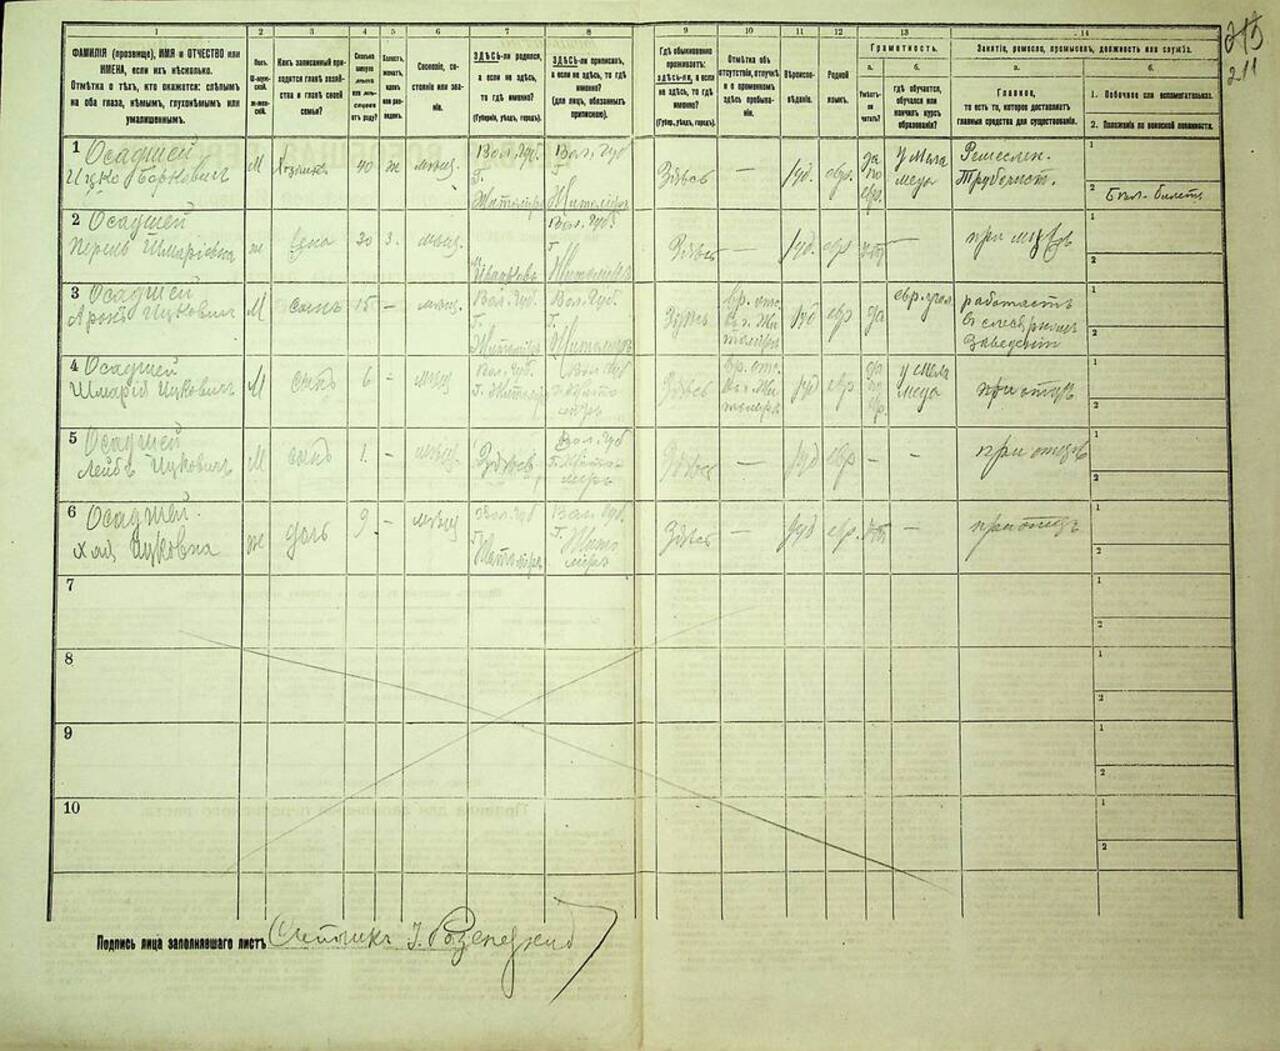 215
211
1
2
3
4
5
6
7
8
9
10
11
12
13
14
ФАМИЛІЯ (прозвище), ИМЯ и ОТЧЕСТВО или
ИМЕНА, если ихъ нѣсколько.
Отмѣтка о тѣхъ, кто окажется: слѣпымъ
на оба глаза, нѣмымъ, глухонѣмымъ или
умалишеннымъ.
Полъ.
М-муж-
ской.
Ж-жен-
скій.
Какъ записанный при-
ходится главѣ хозяй-
ства и главѣ своей
семьи?
Сколько
минуло
лѣтъ
или мѣ-
сяцевъ
отъ роду?
Холостъ,
женатъ,
вдовъ
или раз-
веденъ.
Сословіе, со-
стояніе или зва-
ніе.
ЗДѢСЬ-ли родился,
а если не здѣсь,
то гдѣ именно?
(Губернія, уѣздъ, городъ).
ЗДѢСЬ-ли приписанъ,
а если не здѣсь, то гдѣ
именно?
(для лицъ, обязанныхъ
припискою).
Гдѣ обыкновенно
проживаетъ:
здѣсь-ли, а если
не здѣсь, то гдѣ
именно?
(Губ., уѣздъ, городъ).
Отмѣтка объ
отсутствіи, отлучкѣ
и о временномъ
здѣсь пребыва-
ніи.
Вѣроиспо-
вѣданіе.
Родной
языкъ.
Грамотность.
а.
Умѣетъ-
ли
читать?
б.
гдѣ обучается,
обучался или
кончилъ курсъ
образованія?
Занятіе, ремесло, промыселъ, должность или служба.
а.
Главное,
то есть то, которое доставляетъ
главныя средства для существованія.
б.
1. Побочное или вспомогательное.
2. Положеніе по воинской повинности.
1 Осадшей
Ицко Борковичъ
М
Хозяинъ
40
ж
мѣщ.
Вол. Губ.
Г.
Житоміръ
Вол. Губ
Г.
Житоміръ
Здѣсь
—
Іуд.
евр.
да
по
евр.
у Мела
меда
Ремеслен.
1
2
Бил. билетъ
2 Осадшей
Перель Шмаріевна
ж
жена
30
З.
мѣщ.
Вол. Губ
Г.
Житоміръ
Здѣсь
—
Іуд.
евр
нѣт
—
при мужѣ
1
2
3 Осадшей
Аронъ Ицковичъ
М
сынъ
15
—
мѣщ.
Вол. Губ.
Г.
Житоміръ
Вол. Губ.
Г.
Житоміръ
Здѣсь
вр. отс.
въ г. Жи
томіръ
Іуд
евр
да
работаетъ
въ
заведеніи
1
2
4 Осадшей
Шмарій Ицковичъ
М
сынъ
6
-
мѣщ
Вол. Губ.
Г. Житоміръ
Вол Губ
г. Жито
міръ
Здѣсь
вр. отс.
въ г. Жи
томиръ
Іуд
евр
да
по
евр.
у Мела
меда
при отцѣ
1
2
5 Осадшей
Лейбъ Ицковичъ
М
сынъ
1.
-
мѣщ.
Здѣсь
Вол. Губ
Г. Жито
міръ
Здѣсь
—
Іуд
евр
-
-
при отцѣ
1
2
6 Осадшей.
Хая Ицковна
ж
дочь
9
-
мѣщ
Вол. Губ
Г.
Житоміръ
Вол Губ.
Г. Жито
міръ
Здѣсь
—
Іуд
евр.
нѣт
—
при отцѣ
1
2
7
1
2
8
1
2
9
1
2
10
1
2
Подпись лица заполнявшаго листъ Счетчикъ